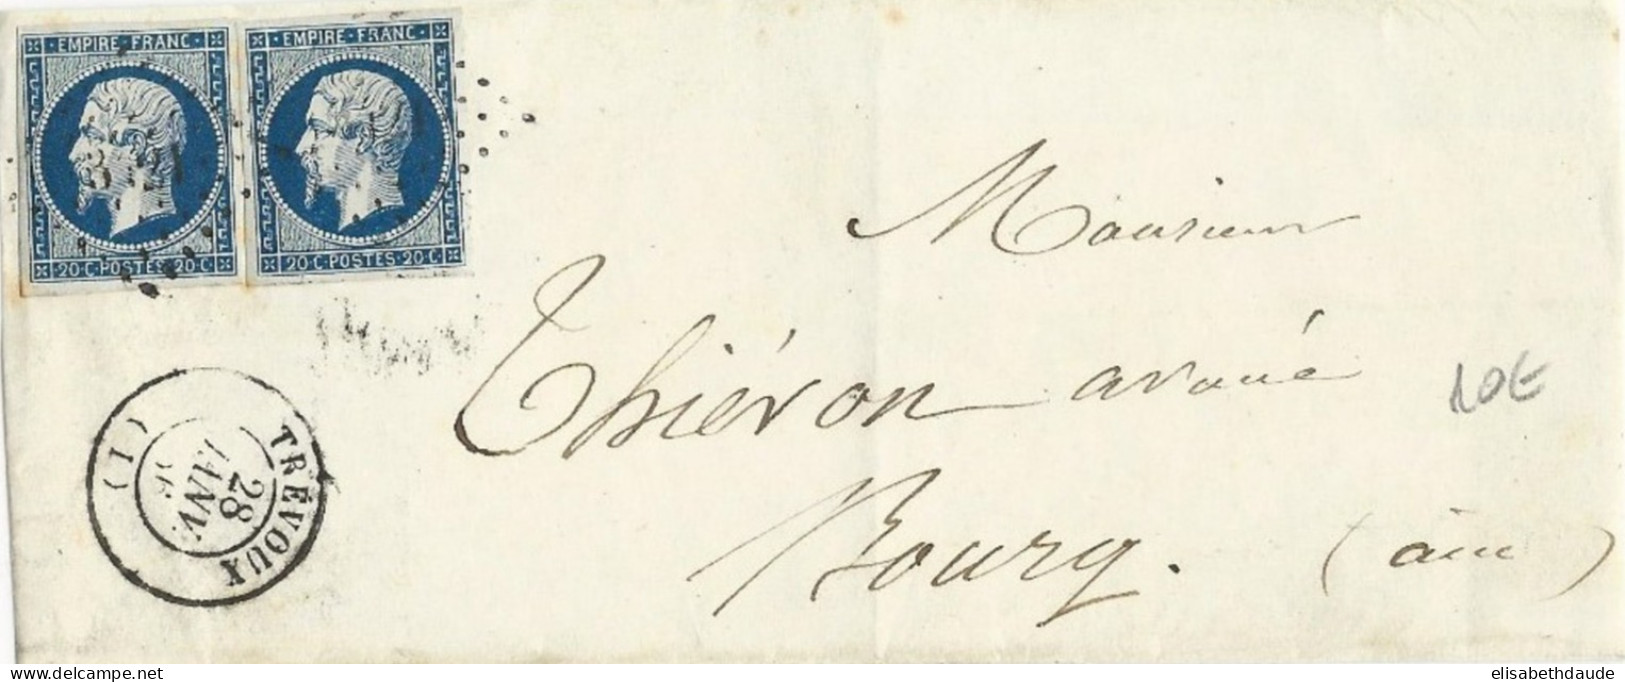 EMPIRE · FRANC ·
20 · C · POSTES · 20 · C ·
EMPIRE · FRANC ·
20 · C · POSTES · 20 · C ·
Monsieur
Thiéron avoué
Bourg. (ain)
10€
TRÉVOUX
28
JANV.
(1)
elisabethdaude